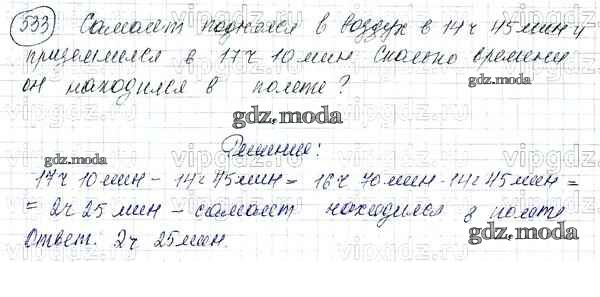 533 Самолет поднялся в воздух в 14ч 45мин и
приземлился в 17ч 10мин Сколько времени
он находился в полете?
gdz.moda
gdz.moda
Решение:
gdz.moda
17ч 10мин - 14ч 45мин = 16ч 70мин - 14ч 45мин =
= 2ч 25 мин - самолет находился в полете
Ответ: 2ч 25мин.
gdz.moda